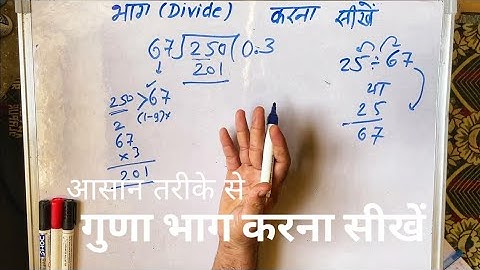 भाग (Divide) करना सीखें
67)250(0.3
201
250 > 67
(1-9)x
2
67
x3
201
25 ÷ 67
या
25
67
आसान तरीके से
गुणा भाग करना सीखें